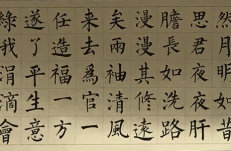 然月明如昔
思君夜夜肝
膽長如洗路
漫漫其修遠
矣兩袖清風
來去爲官一
任造福一方
遂了平生意
綠我涓滴會